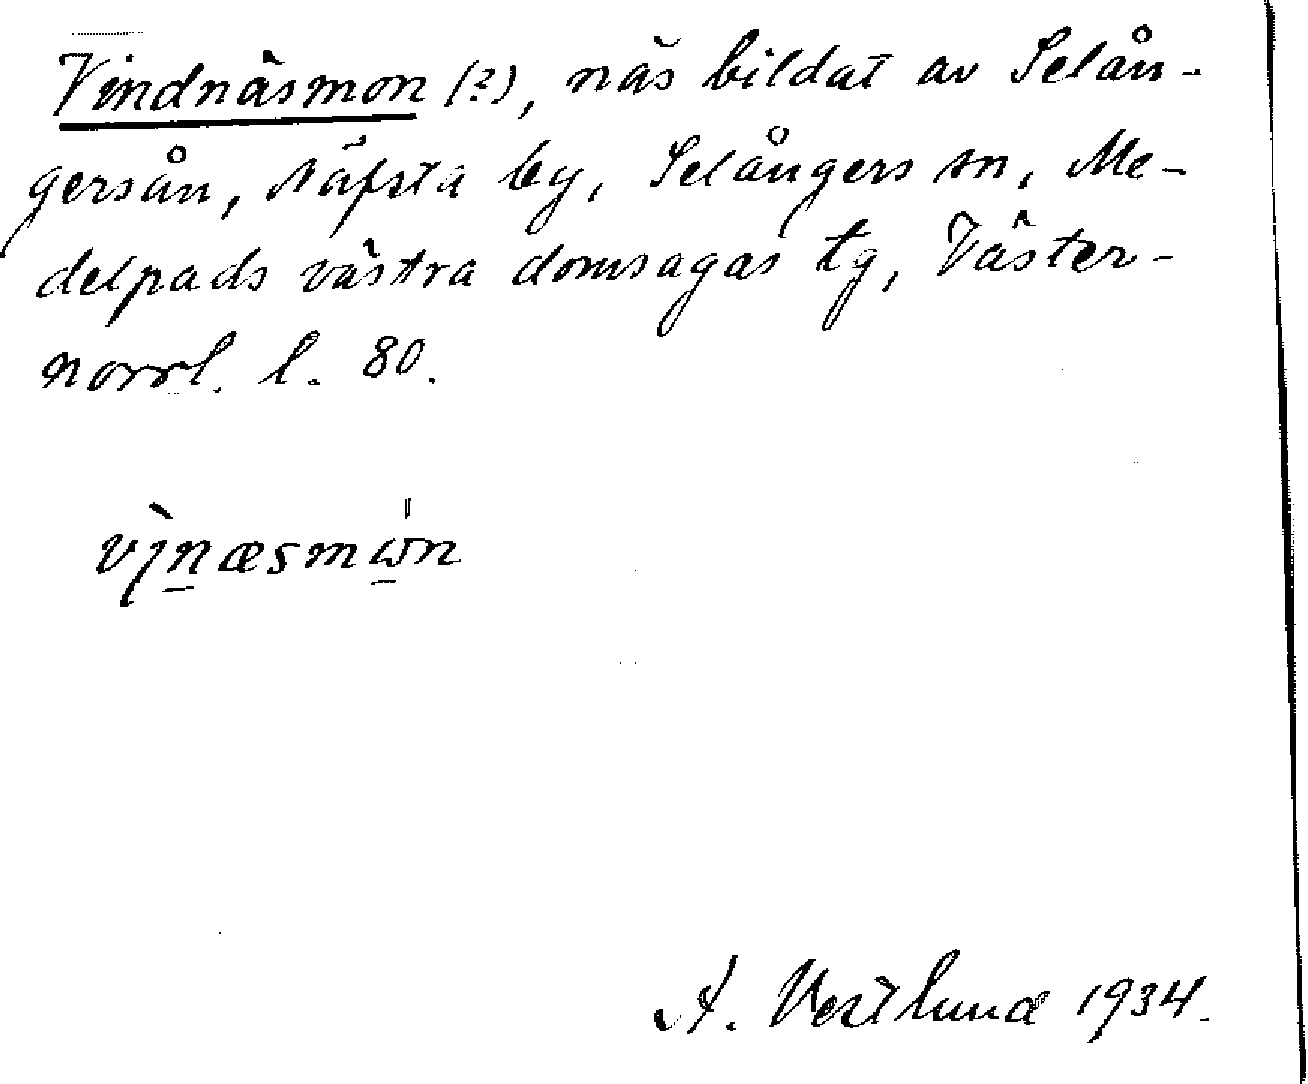 Vindnäsmon (?), näs bildat av Selån-
gersån, Näfsta by, Selångers sn, Me-
delpads västra domsagas tg, Väster-
norrl. l. 80.
vı̀n̲æsmω̲̍n
A. Vestlund 1934.